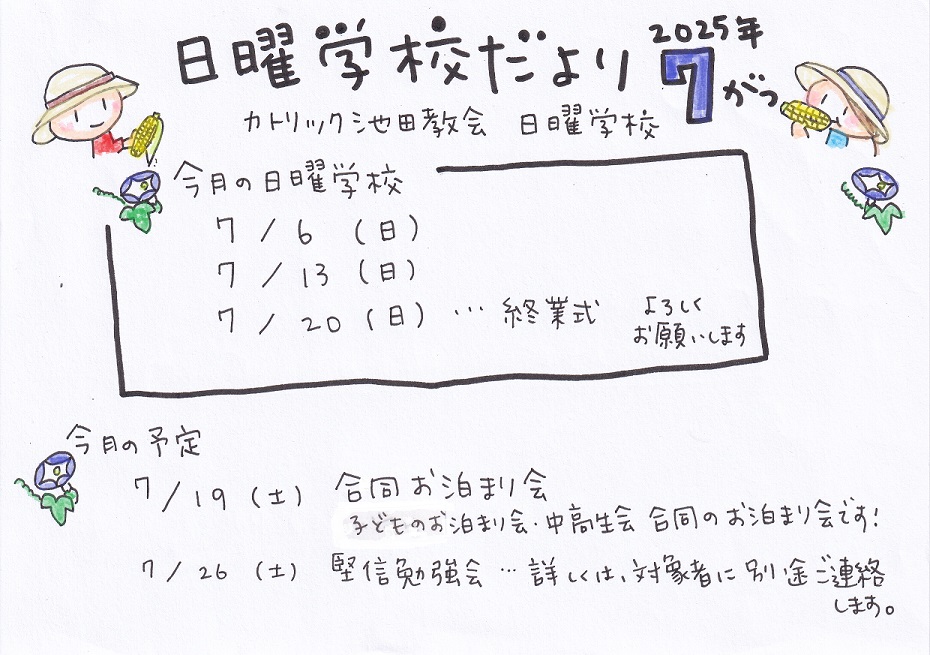 日曜学校だより
2025年
7がつ
カトリック池田教会 日曜学校
今月の日曜学校
7/6 (日)
7/13 (日)
7/20 (日) … 終業式 よろしく
お願いします
今月の予定
7/19 (土) 合同お泊まり会
子どものお泊まり会・中高生会 合同のお泊まり会です!
7/26 (土) 堅信勉強会 … 詳しくは、対象者に別途ご連絡
します。